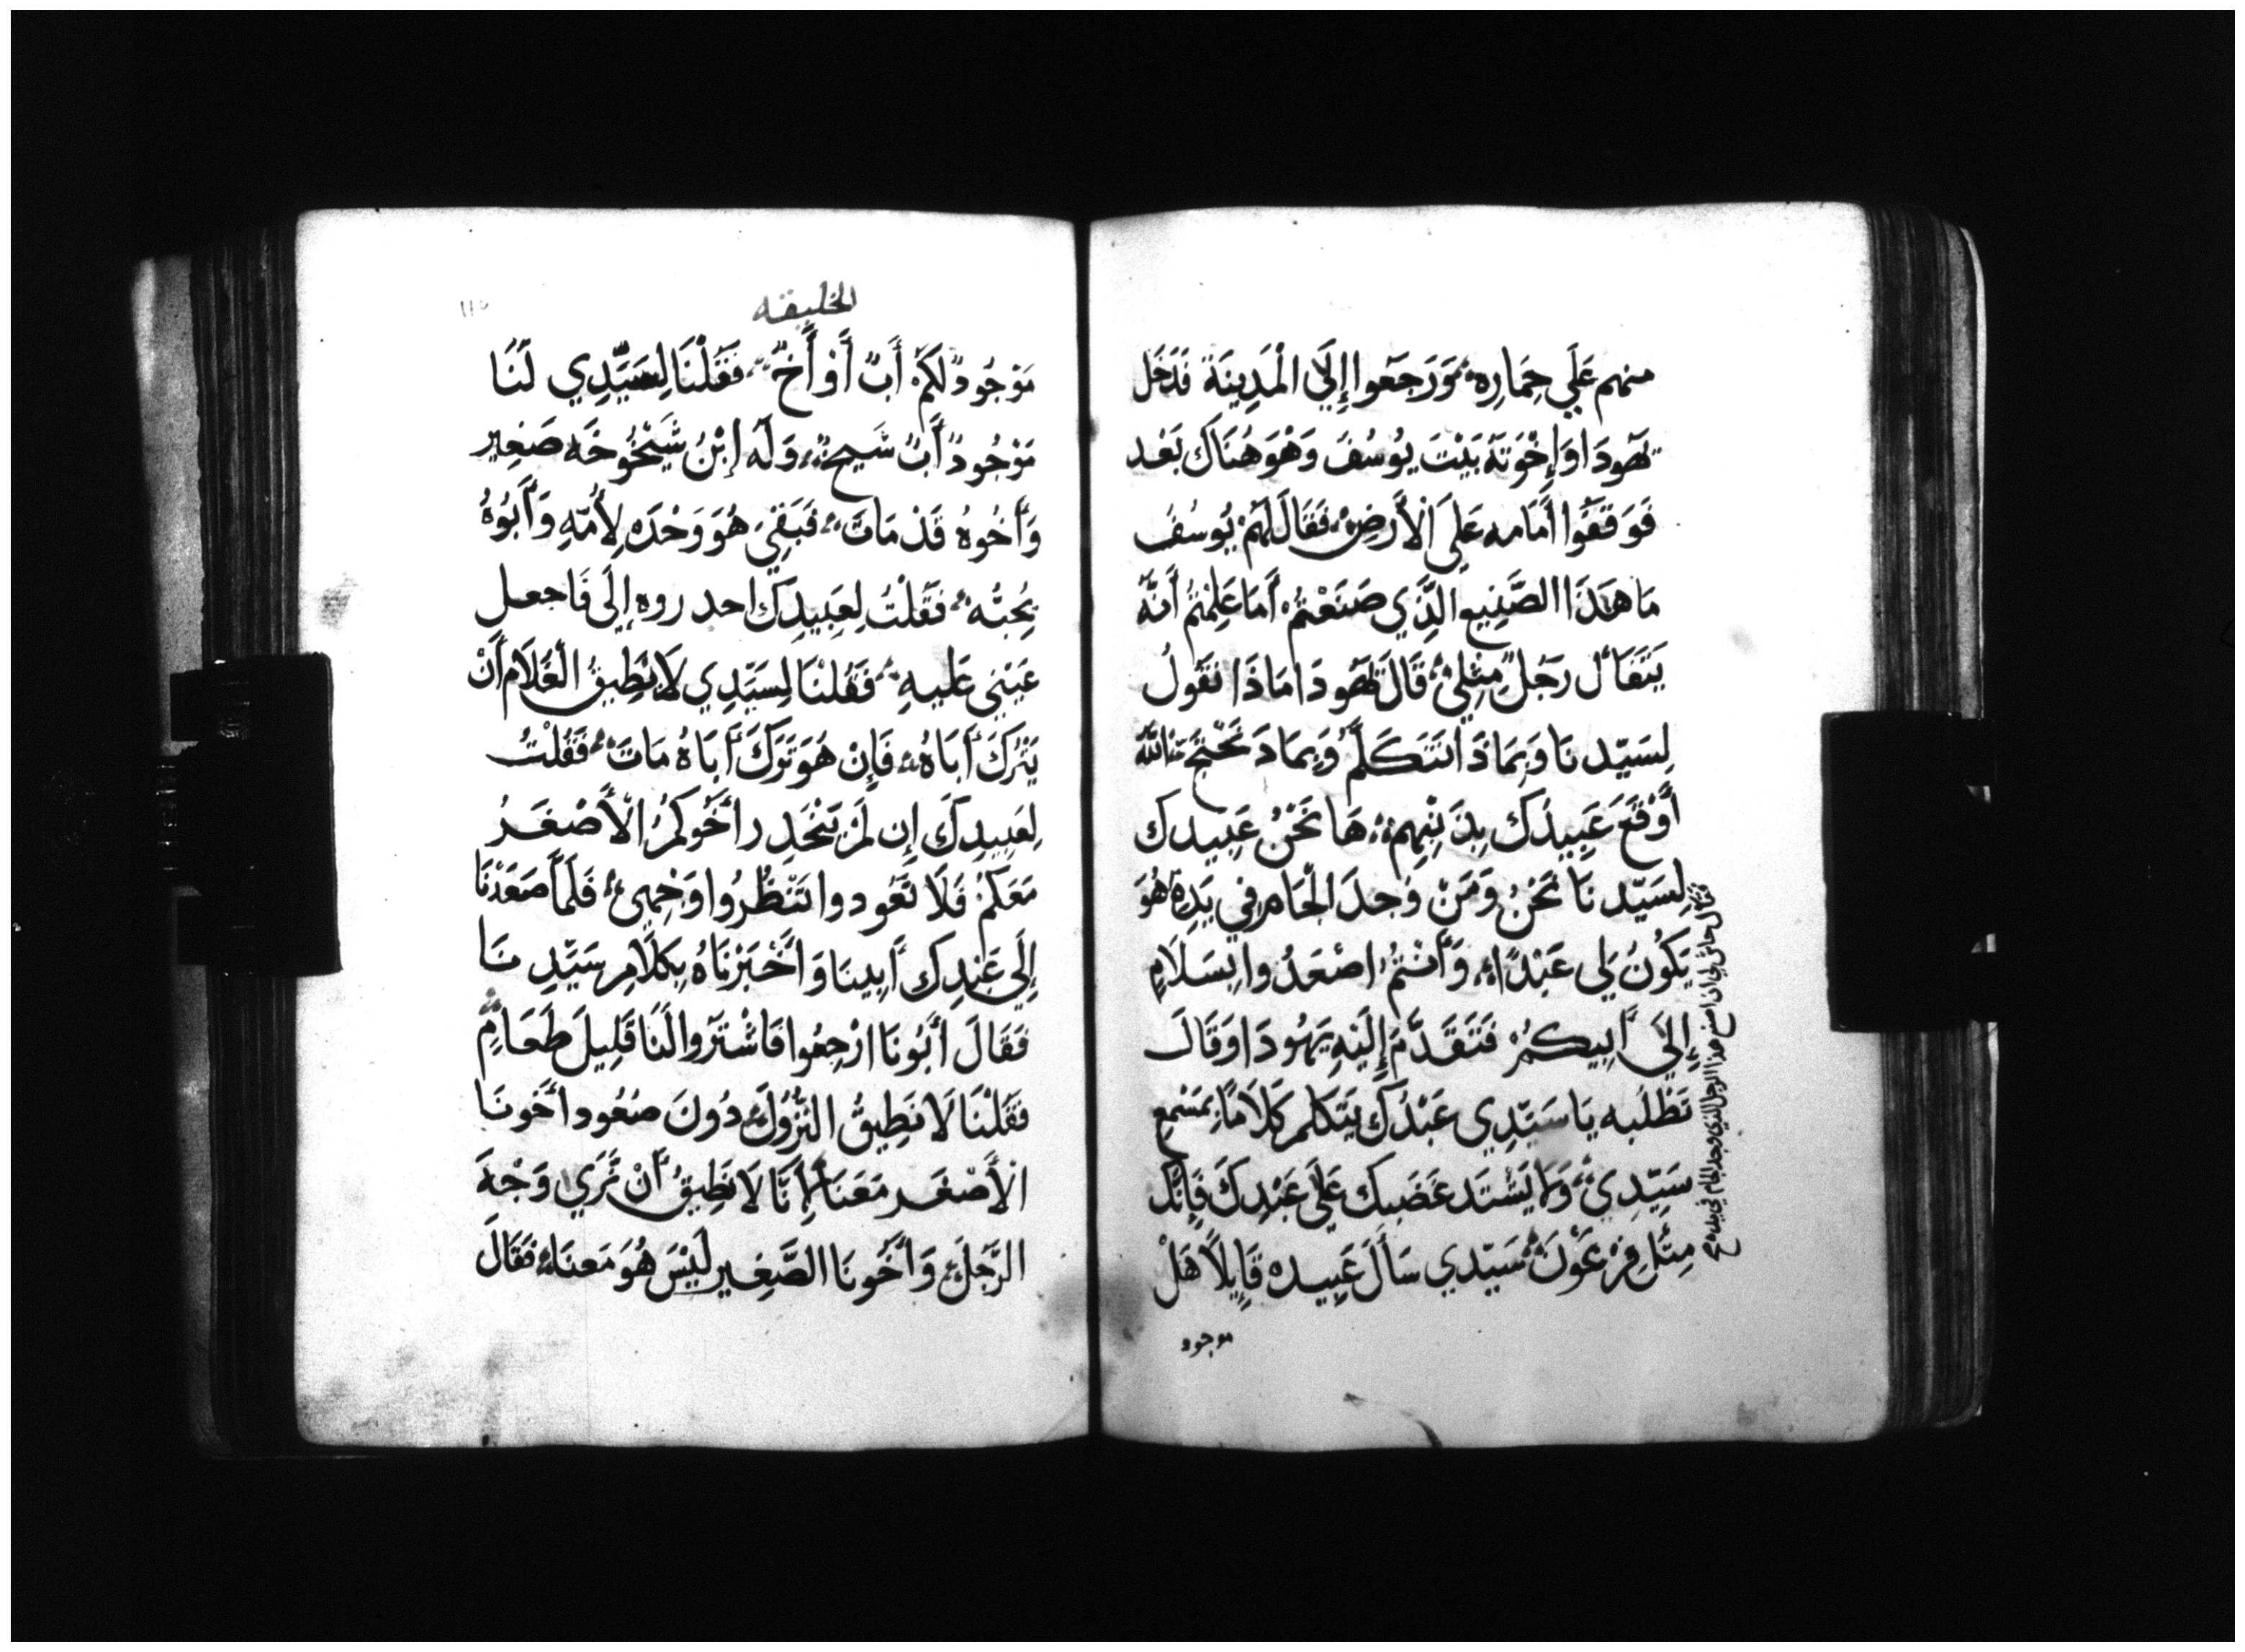 منهم عَلَي حِمَارِه وَرَجَعوا إِلَي الْمَدِينَة فَدَخَل
يَهودَا وَإِخْوَتَهَ بَيْتَ يُوسُفَ وَهْوَ هُنَاك بَعْد
فَوَقَعُوا أَمَامه عَلَي الْأَرْضِ فَقَالَ لَهُمْ يُوسُف
مَا هَذَا الصَّنِيع الَّذِي صَنَعْتُمْ أَمَا عَلِمْتُمْ أَنَّهُ
يَتَفَاَل رَجُلٌ مِثْلِي قَالَ يَهودَا مَاذَا نَقُولُ
لِسَيّدنَا وَبِمَاذَا نَتَكَلَّم وَبِمَاذَ نَحْتَجّ الله
أَوْقَعَ عَبِيدُكَ بِذَنْبِهِم هَا نَحْنُ عَبِيدك
لِسَيّدنَا نَحْنُ وَمَنْ وُجدَ الْجَام فِي يَدِهِ هُوَ
يَكُونُ لِي عَبْدًا وَأَنْتُمُ اصْعَدُوا بِسَلَامٍ
إِلَي أَبِيكُمْ فَتَقَدَّمَ إِلَيْهِ يَهُودَا وَقَالَ
نَطْلُبه يَا سَيّدِي عَبْدُكَ يَتَكَلم كَلَامًا بِمَسْمِع
سَيّدِي وَلا يَشْتَد غَضَبك عَلَي عَبْدِكَ فَإِنَّكَ
مِثْل فِرْعَوْنَ سَيّدي سَأَلَ عَبِيده قَائِلًا هَلْ
موجود
فقال حاش لي ان اصنع هذا الرجل الذي وجد الجام في يده
الخليقه
مَوْجُودٌ لَكُمْ أَبٌ أَوْ أَخٌ فَقُلْنَا لِسَيِّدِي لَنَا
مَوْجُودٌ أَبٌ شَيخٌ وَلَه إبْنُ شَيْخُوخَه صَغِير
وَأَخُوهُ قَدْ مَاتَ فَبَقِيَ هُوَ وَحْدَه لِأُمّهِ وَأَبُوهُ
يُحِبُّه فَقُلْتُ لِعَبِيدِكَ احدروه إلَي فَاجعل
عَيْنِي عَليهِ فَقُلْنَا لِسَيّدِي لَا يُطِيقُ الْغُلَام أَنْ
يَتْرُكَ أَبَاهُ فَإِنْ هُوَ تَرَكَ أَبَاهُ مَاتَ فَقُلْتُ
لِعَبِيدِكَ إِن لَمْ يَنْحَدِر أَخُوكُمُ الْأَصْغَرُ
مَعَكُمْ فَلَا تَعُودوا تَنْظُرُوا وَجْهِي فَلَمَّا صَعَدْنَا
إِلَي عَبْدِك أَبِينَا وَأَخْبَرْنَاهُ بِكَلَامِ سَيّدِنَا
فَقَالَ أَبُونَا ارْجِعُوا فَاشْتَرُوا لَنَا قَلِيلَ طَعَامٍ
فَقُلْنَا لَا نَطِيقُ النُّزُولَ دُونَ صُعُود أَخُونَا
الْأَصْغَر مَعَنَا لِأَنَّا لَا نَطِيقُ أَنْ نَرَي وَجْهَ
الرَّجُلَ وَأَخُونَا الصَّغِير لَيْسَ هُوَ مَعنَا فَقَالَ